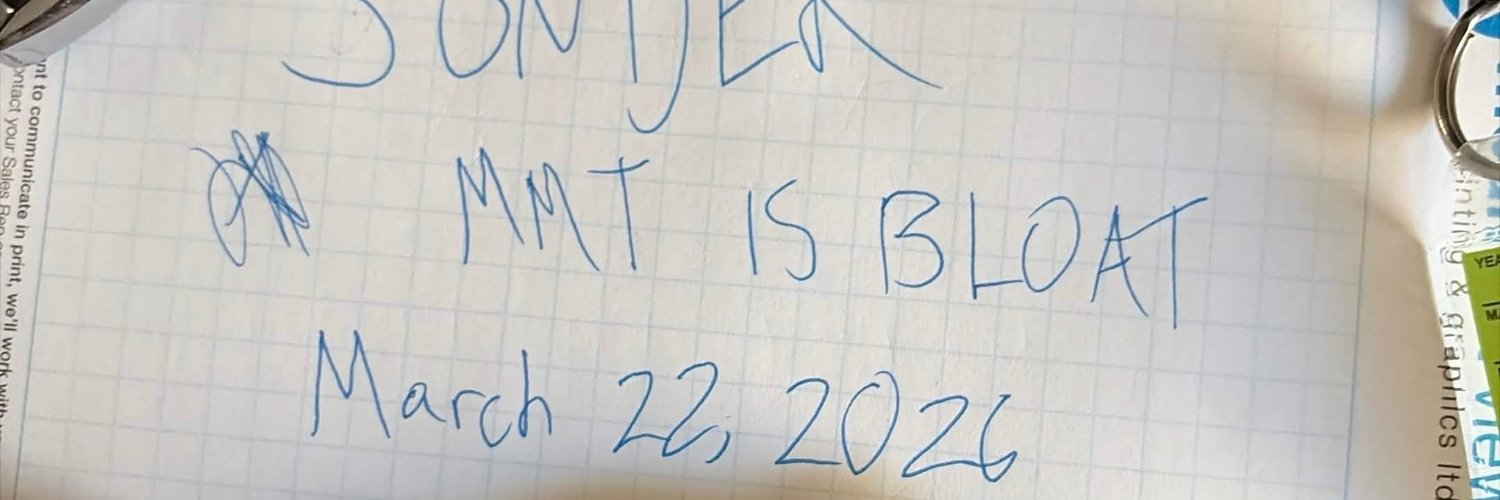 SONJER
MMT IS BLOAT
March 22, 2026
nt to communicate in print, we'll work with
ontact your Sales Rep
inting & graphics ltd
view
YEA